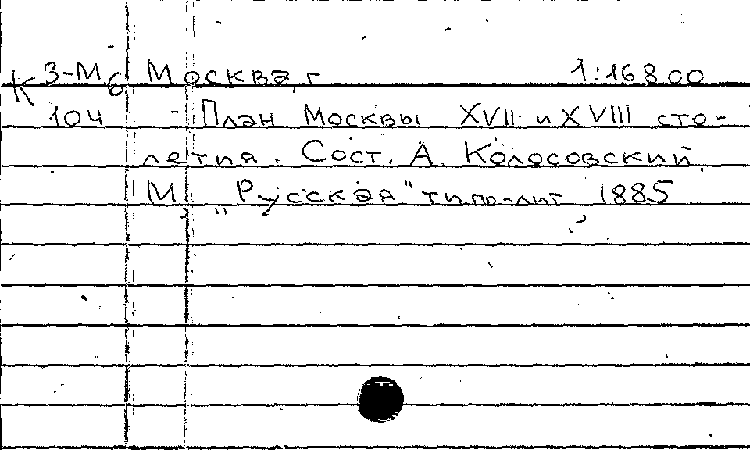 К 3-М6 Москва, г 1:16800
104 План Москвы XVII и XVIII сто-
летия. Сост. А. Колосовский
М, "Русская" типо-лит, 1885